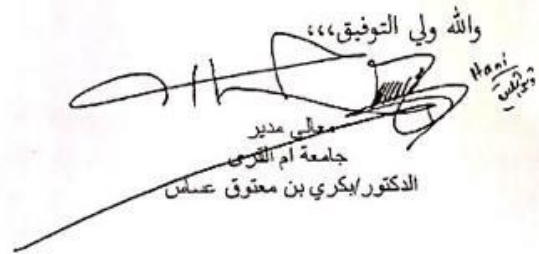 والله ولي التوفيق،،،
Hani
معالي مدير
جامعة ام القرى
الدكتور/بكري بن معتوق عساس